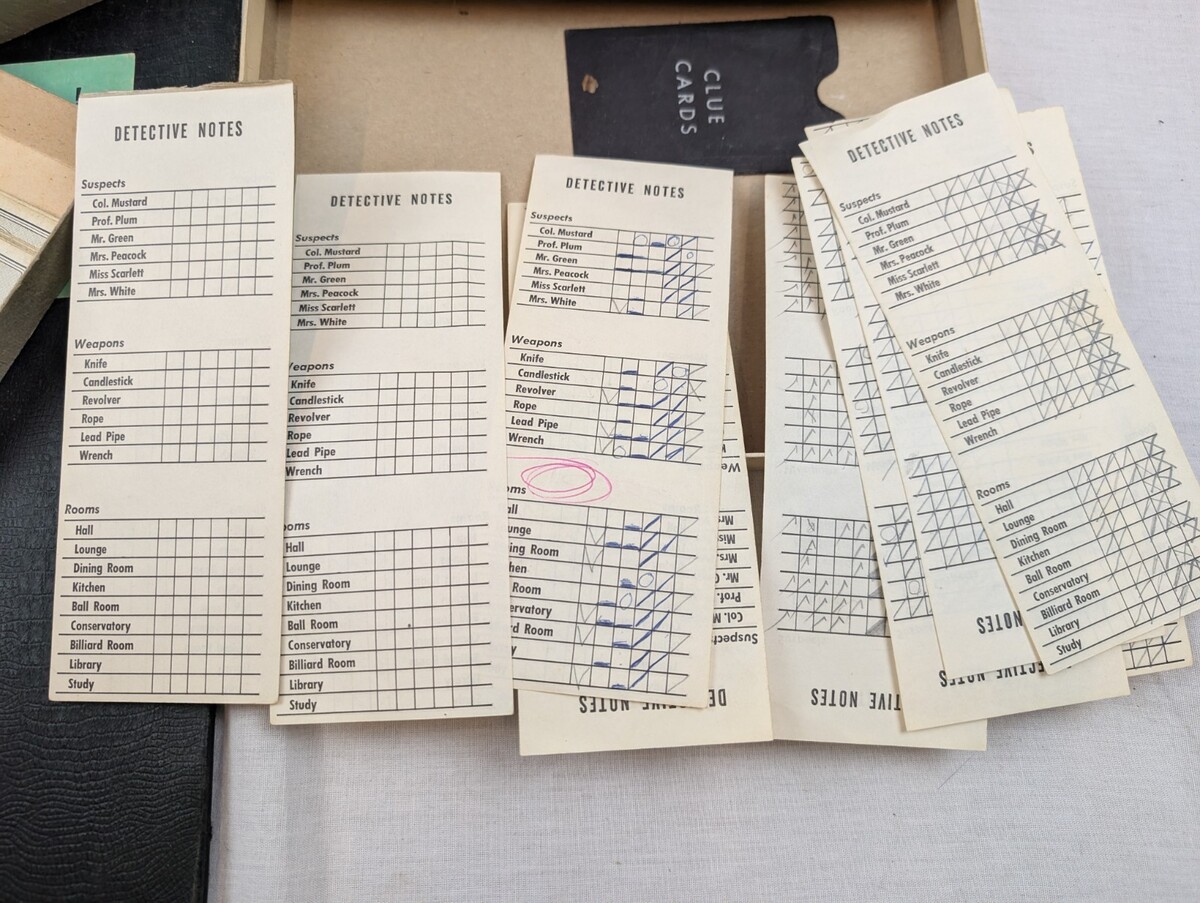 CLUE
CARDS
DETECTIVE NOTES
Suspects
Col. Mustard
Prof. Plum
Mr. Green
Mrs. Peacock
Miss Scarlett
Mrs. White
Weapons
Knife
Candlestick
Revolver
Rope
Lead Pipe
Wrench
Rooms
Hall
Lounge
Dining Room
Kitchen
Ball Room
Conservatory
Billiard Room
Library
Study
DETECTIVE NOTES
Suspects
Col. Mustard
Prof. Plum
Mr. Green
Mrs. Peacock
Miss Scarlett
Mrs. White
eapons
Knife
Candlestick
Revolver
Rope
Lead Pipe
Wrench
oms
Hall
Lounge
Dining Room
Kitchen
Ball Room
Conservatory
Billiard Room
Library
Study
DETECTIVE NOTES
Suspects
Col. Mustard
Prof. Plum
Mr. Green
Mrs. Peacock
Miss Scarlett
Mrs. White
Weapons
Knife
Candlestick
Revolver
Rope
Lead Pipe
Wrench
oms
all
unge
ing Room
hen
Room
ervatory
rd Room
y
DETECTIVE NOTES
Suspects
Col. M
Prof.
Mr. G
Mrs.
Mis
Mrs
We
DETECTIVE NOTES
CTIVE NOTES
NOTES
DETECTIVE NOTES
Suspects
Col. Mustard
Prof. Plum
Mr. Green
Mrs. Peacock
Miss Scarlett
Mrs. White
Weapons
Knife
Candlestick
Revolver
Rope
Lead Pipe
Wrench
Rooms
Hall
Lounge
Dining Room
Kitchen
Ball Room
Conservatory
Billiard Room
Library
Study